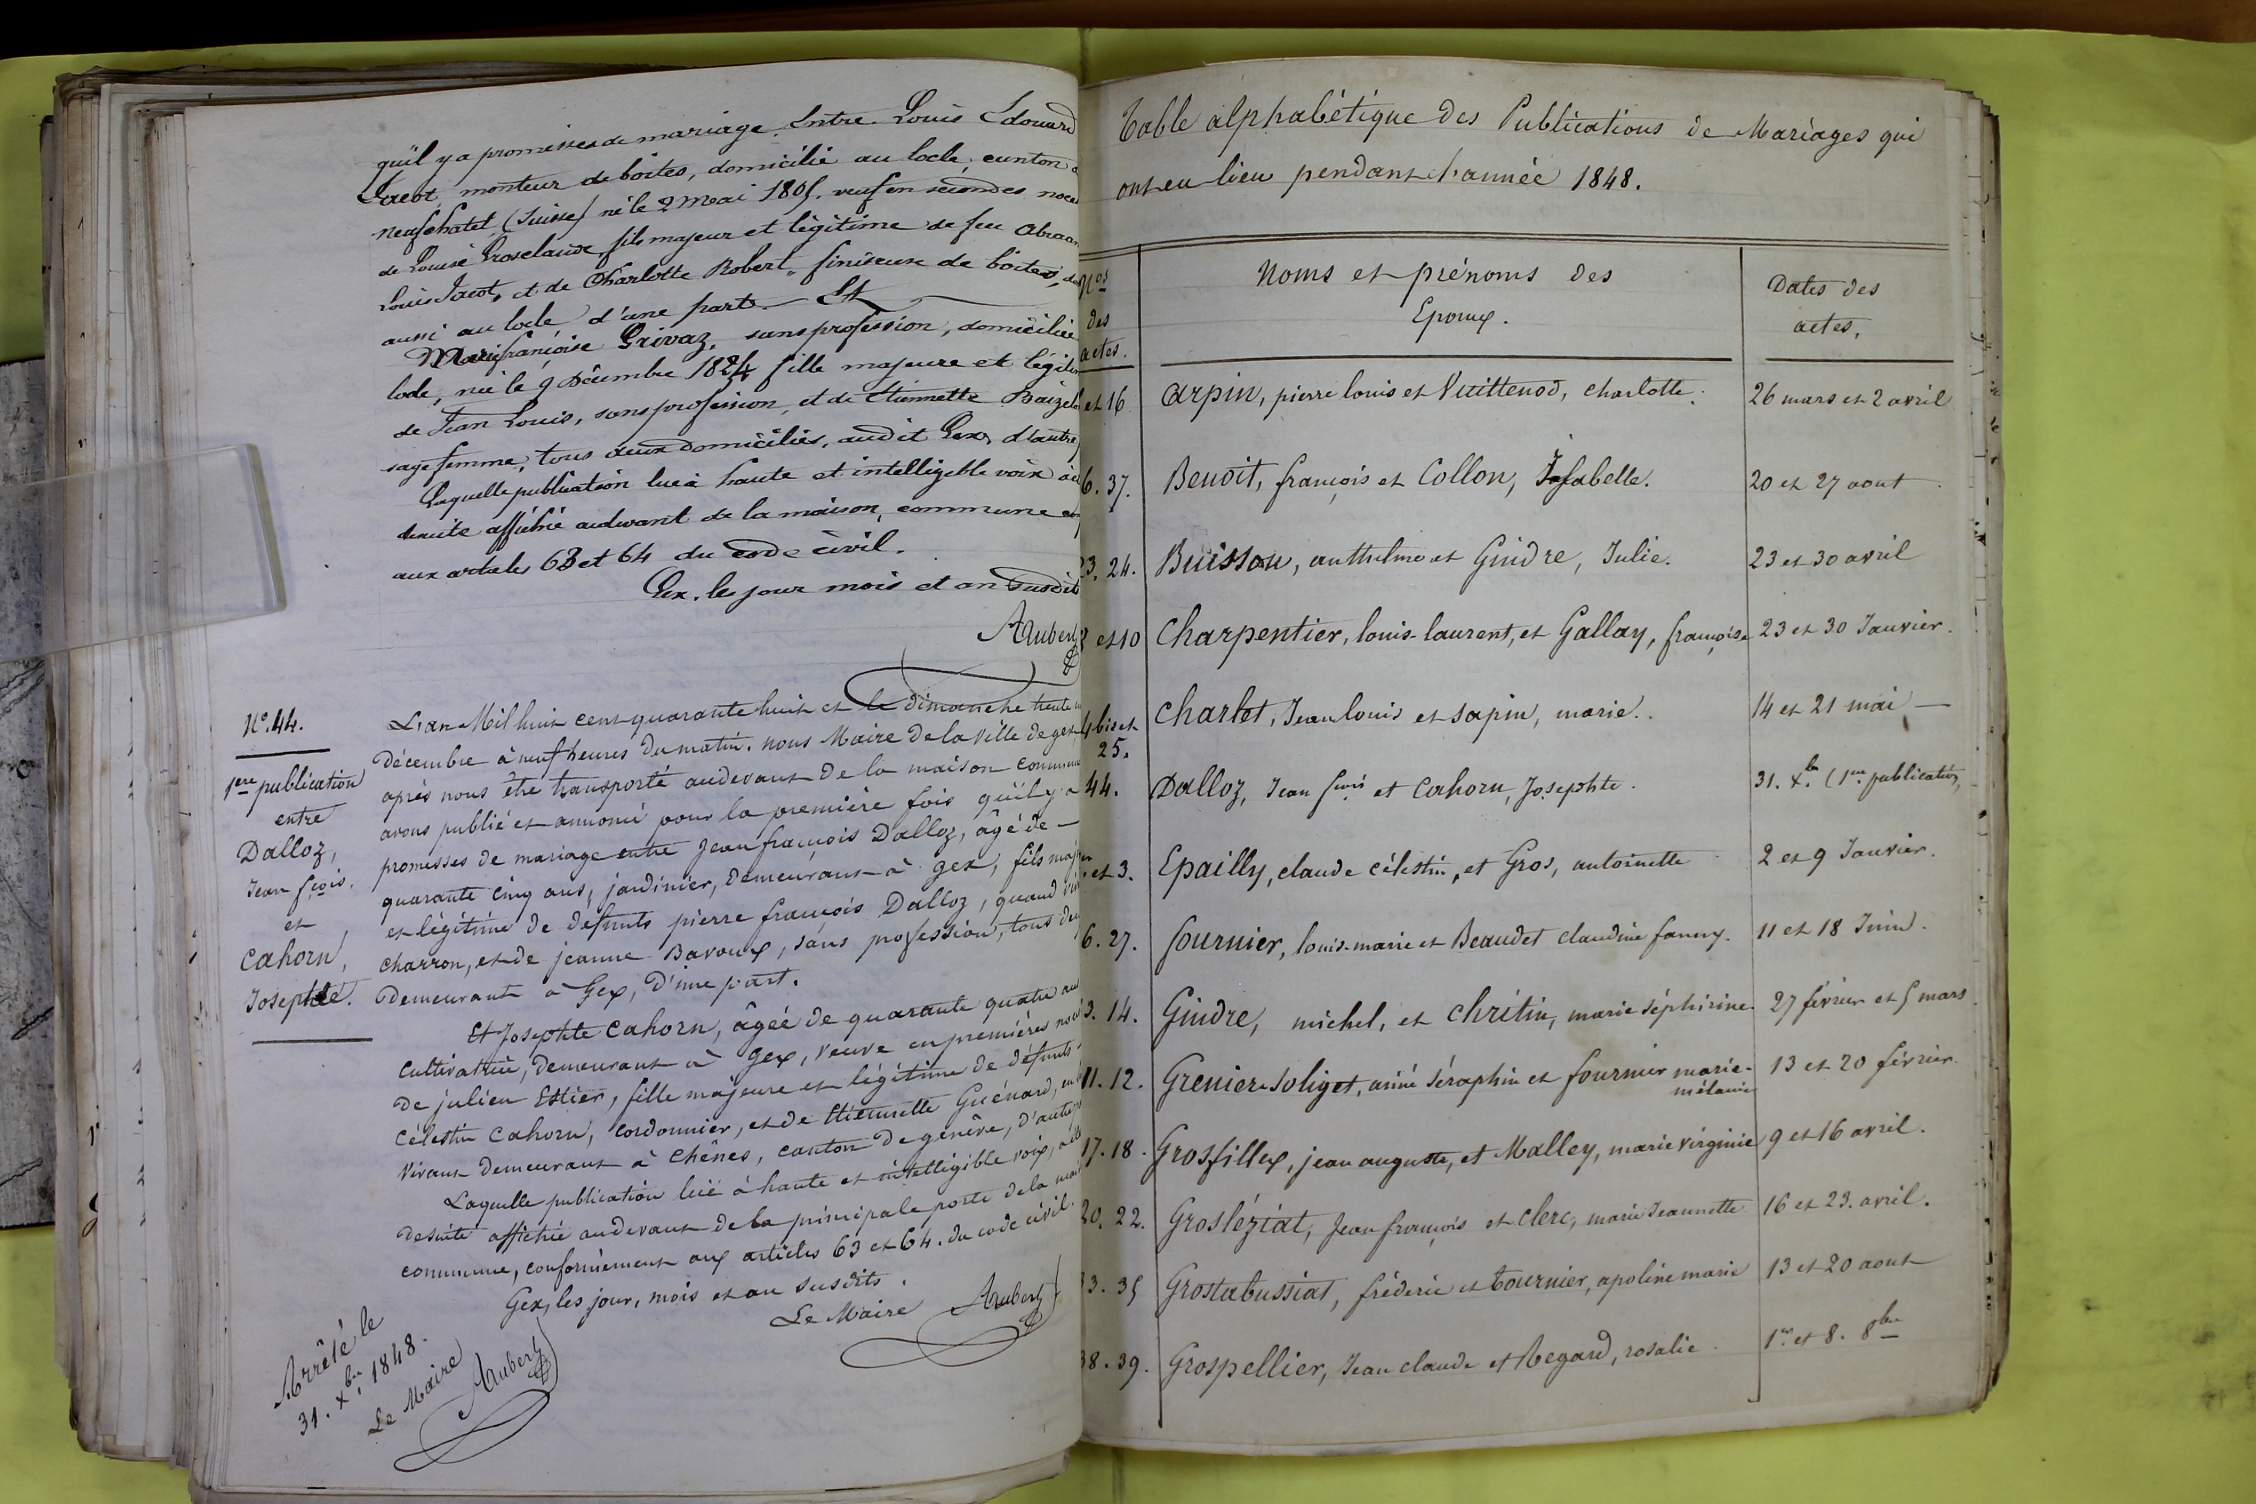 qu'il y a promesses de mariage. Entre Louis Edouard
Jacot, monteur de boîtes, domicilié au locle, canton
neufchatel, (Suisse) né le 2 Mai 1805. veuf en secondes noces
de Louise Groselaude, fils majeur et légitime de feu Abraam
Louis Jacot, et de Charlotte Robert, finiseuse de boîtes,
aussi au locle d'une part. Et
Marie françoise Privaz, sans profession, domiciliée
locle, née le 9 Décembre 1824 fille majeure et légiti
de Jean Louis, sans profession, et de Etiennette
sage femme, tous deux domiciliés, audit Gex, d'autre
Laquelle publication lue à haute et intelligible voix
desuite affichée au devant de la maison, commune
aux articles 63 et 64 du code civil.
Gex. les jour mois et an susdits
Aubert
N.º 44.
1ere publication
entre
Dalloz,
Jean fçois.
et
Cahorn,
Josephte.
L'an Mil huit cent quarante huit et le dimanche trente
décembre à neuf heures du matin. nous Maire de la Ville de gex
après nous être transporté au devant de la maison commune
avons publié et annoncé pour la première fois qu'il y a
promesses de mariage entre Jean françois Dalloz, âgé de
quarante cinq ans, jardinier, demeurant à gex, fils majeur
et légitime de défunts pierre françois Dalloz, quand
charron, et de jeanne Bavoux, sans profession, tous
Demeurant à Gex, d'une part.
Et Josephte Cahorn, âgée de quarante quatre ans
Cultivatrice, demeurant à gex, veuve en premières noces
de julien Estier, fille majeure et légitime de défunts
Célestin Cahorn, cordonnier, et de Etiennette Guénard,
Vivant demeurant à Chênes, canton de genève, d'autre
Laquelle publication lue à haute et intelligible voix,
desuite affichée au devant de la principale porte de la
commune, conformément aux articles 63 et 64. du code civil.
Gex, les jour, mois et an susdits.
Le Maire Aubert
Arrêté le
31. Xbre 1848.
Le Maire
Aubert
Table alphabétique des Publications de Mariages qui
ont eu lieu pendant l'année 1848.
Nos des actes. Noms et prénoms des Epoux. Dates des actes.
et 16 Arpin, pierre louis et Vuittenod, charlotte. 26 mars et 2 avril
6. 37. Benoit, françois et Collon, Isabelle. 20 et 27 aout
23. 24. Buisson, anthelme et Gindre, Julie. 23 et 30 avril
et 10 Charpentier, louis-laurent, et Gallay, françoise 23 et 30 Janvier.
4 bis et 25. Charlet, Jean louis et Sapin, marie. 14 et 21 mai
44. Dalloz, Jean fçois et Cahorn, Josephte. 31. Xbre. (1ere publication)
et 3. Epailly, claude célestin, et Gros, antoinette 2 et 9 Janvier.
6. 27. fournier, louis-marie et Beaudet claudine fanny. 11 et 18 Juin.
3. 14. Gindre, michel, et Chrétin, marie séphirine 27 février et 5 mars
11. 12. Grenier-Soliget, aimé séraphin et fournier marie-mélanie 13 et 20 février.
17. 18. Grosfillex, jean auguste, et Malley, marie virginie 9 et 16 avril.
20. 22. Grosléziat, Jean françois et Clerc, marie Jeannette 16 et 23. avril.
33. 35 Grostabussiat, fréderic et Tournier, apoline marie 13 et 20 aout
38. 39. Grospellier, Jean claude et Regard, rosalie. 1er et 8. 8bre